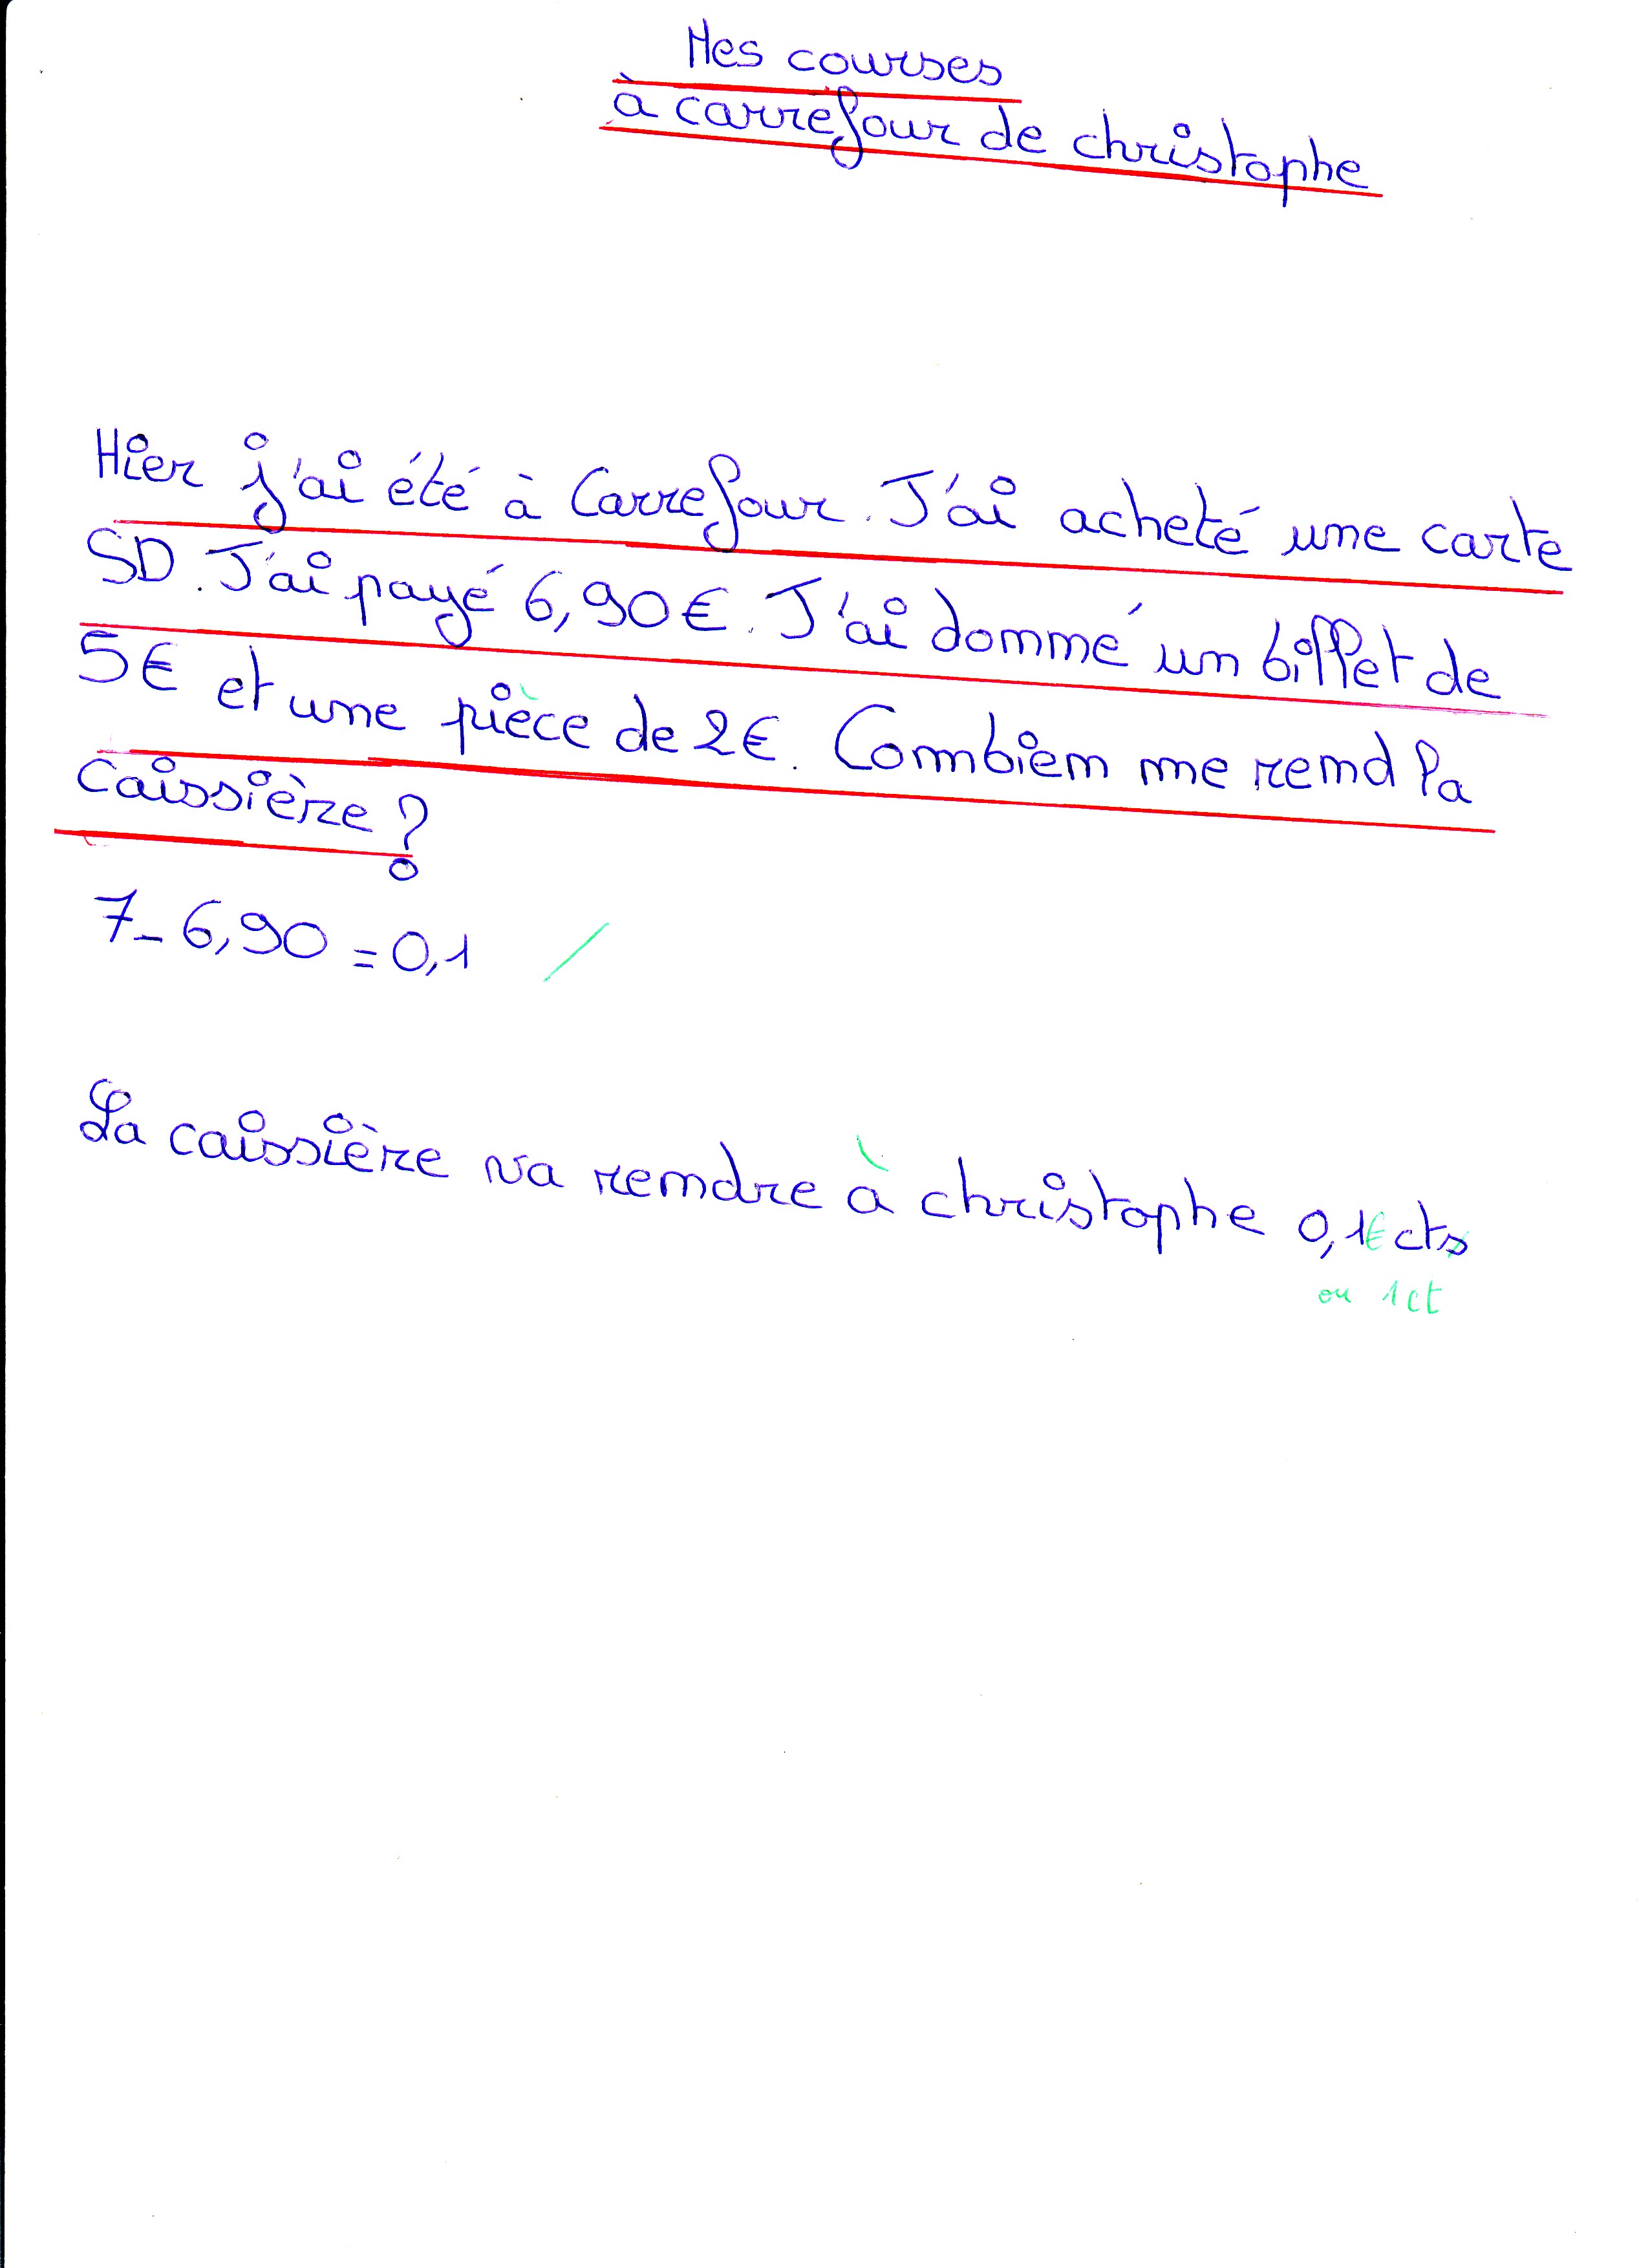 Mes courses
à carrefour de christophe
Hier j'ai été à Carrefour. J'ai acheté une carte
SD. J'ai payé 6,90€. J'ai donné un billet de
5€ et une pièce de 2€. Combien me rend la
caissière ?
7-6,90 = 0,1 /
La caissière va rendre à christophe 0,1€ cts
ou 1ct